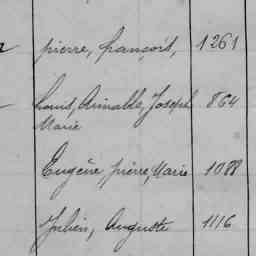 pierre, françois, 1261
Louis, Aimable, Joseph 864
Marie
Eugène, pierre, Marie 1088
Julien, Auguste 1116